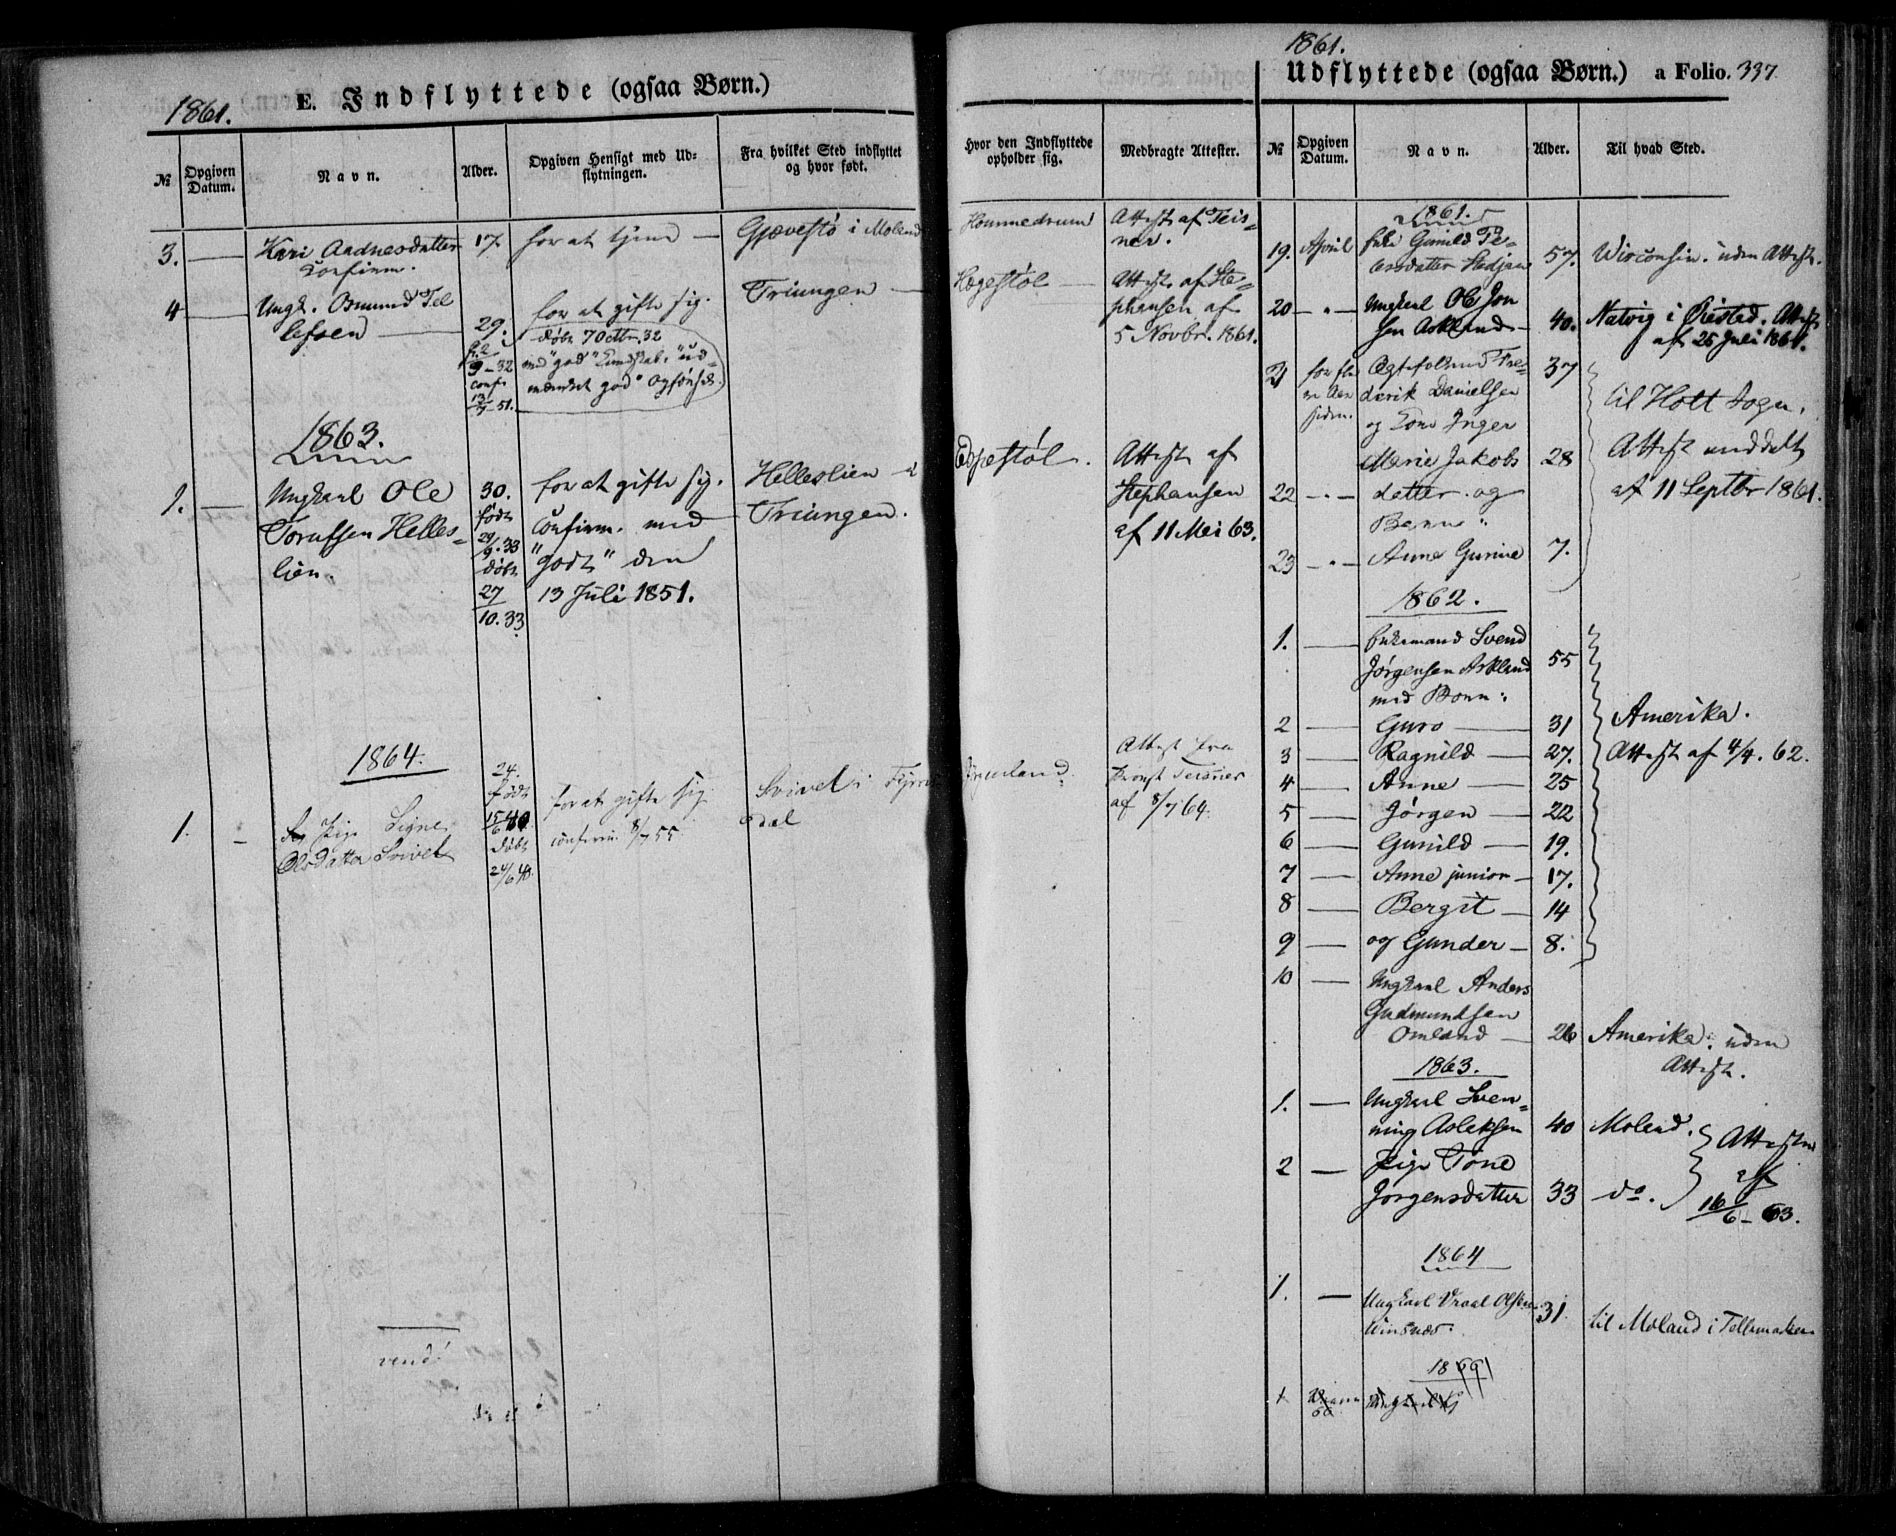 1861.
E. Indflyttede (ogsaa Børn.)
№
Opgiven Datum.
Navn.
Alder.
Opgiven Hensigt med Udflytningen.
Fra hvilket Sted indflyttet og hvor født.
Hvor den Indflyttede opholder sig.
Medbragte Attester.
3. Kari Aadnesdatter 17. for at tjene Gjævestø i Moland Hommedrum Attest af Teis-
confirm. ner.
4 Ungk. Osmund Tel 29. for at gifte sig. Triungen Hægestøl Attest af Ste-
lefsen døbt 7 Octbr. 32 phansen af
9-32 med "god" Kundskab, "ud- 5 Novbr. 1861.
conf. mærket god" Opførsel.
1863.
1. Ungkarl Ole 30. for at gifte sig. Helleslien Espestøl. Attest af
Torufsen Helles- født Confirm. med Triungen. Stephansen
lien. 9.33 "godt" den af 11 Mei 63.
døbt 13 Juli 1851.
27
10.33
1864.
24. født
1. Pige Signe for at gifte sig Svivet i Fyrres- Attest fra
Olsdatter Svivet døbt confirm. 8/7 55 dal Provst Teisner
24/6 40 af 8/7 64.
vend!
1861.
Udflyttede (ogsaa Børn.) a Folio. 337
№
Opgiven Datum.
Navn.
Alder.
Til hvad Sted.
1861.
19. April Enke Gunild Pe- 57. Wisconsin. uden Attest.
dersdatter
20 Ungkarl Ole Jon
sen Askland 40. Natvig i Øiestad. Attest
af 25 Juli 1861.
21 for fle Ægtefolkene Fre- 37
re Aar derik Danielsen til Holt Sogn.
siden. og Kone Inger
Marie Jakobs 28 Attest meddelt
22 datter og af 11 Septbr 1861.
Barn:
23 Anne Gurine 7.
1862.
1. Enkemand Svend
Jørgensen Askland 55
med Børn:
2 Guro 31 Amerika.
3 Ragnild 27. Attest af 4/4. 62.
4 Anne 25
5 Jørgen 22
6 Gunild 19.
7 Anne junior 17.
8 Bergit 14
9 og Gunder 8.
10 Ungkarl Anders
Gudmundsen
Omland 26 Amerika. uden
Attest.
1863.
1. Ungkarl Sven-
ning Aslaksen 40 Moland. Attester
2 Pige Tone af
Jørgensdatter 33 do. 16/6-63.
1864
1. Ungkarl Vraal Olsen 31 til Moland i Tellemarken
Winsnæs.